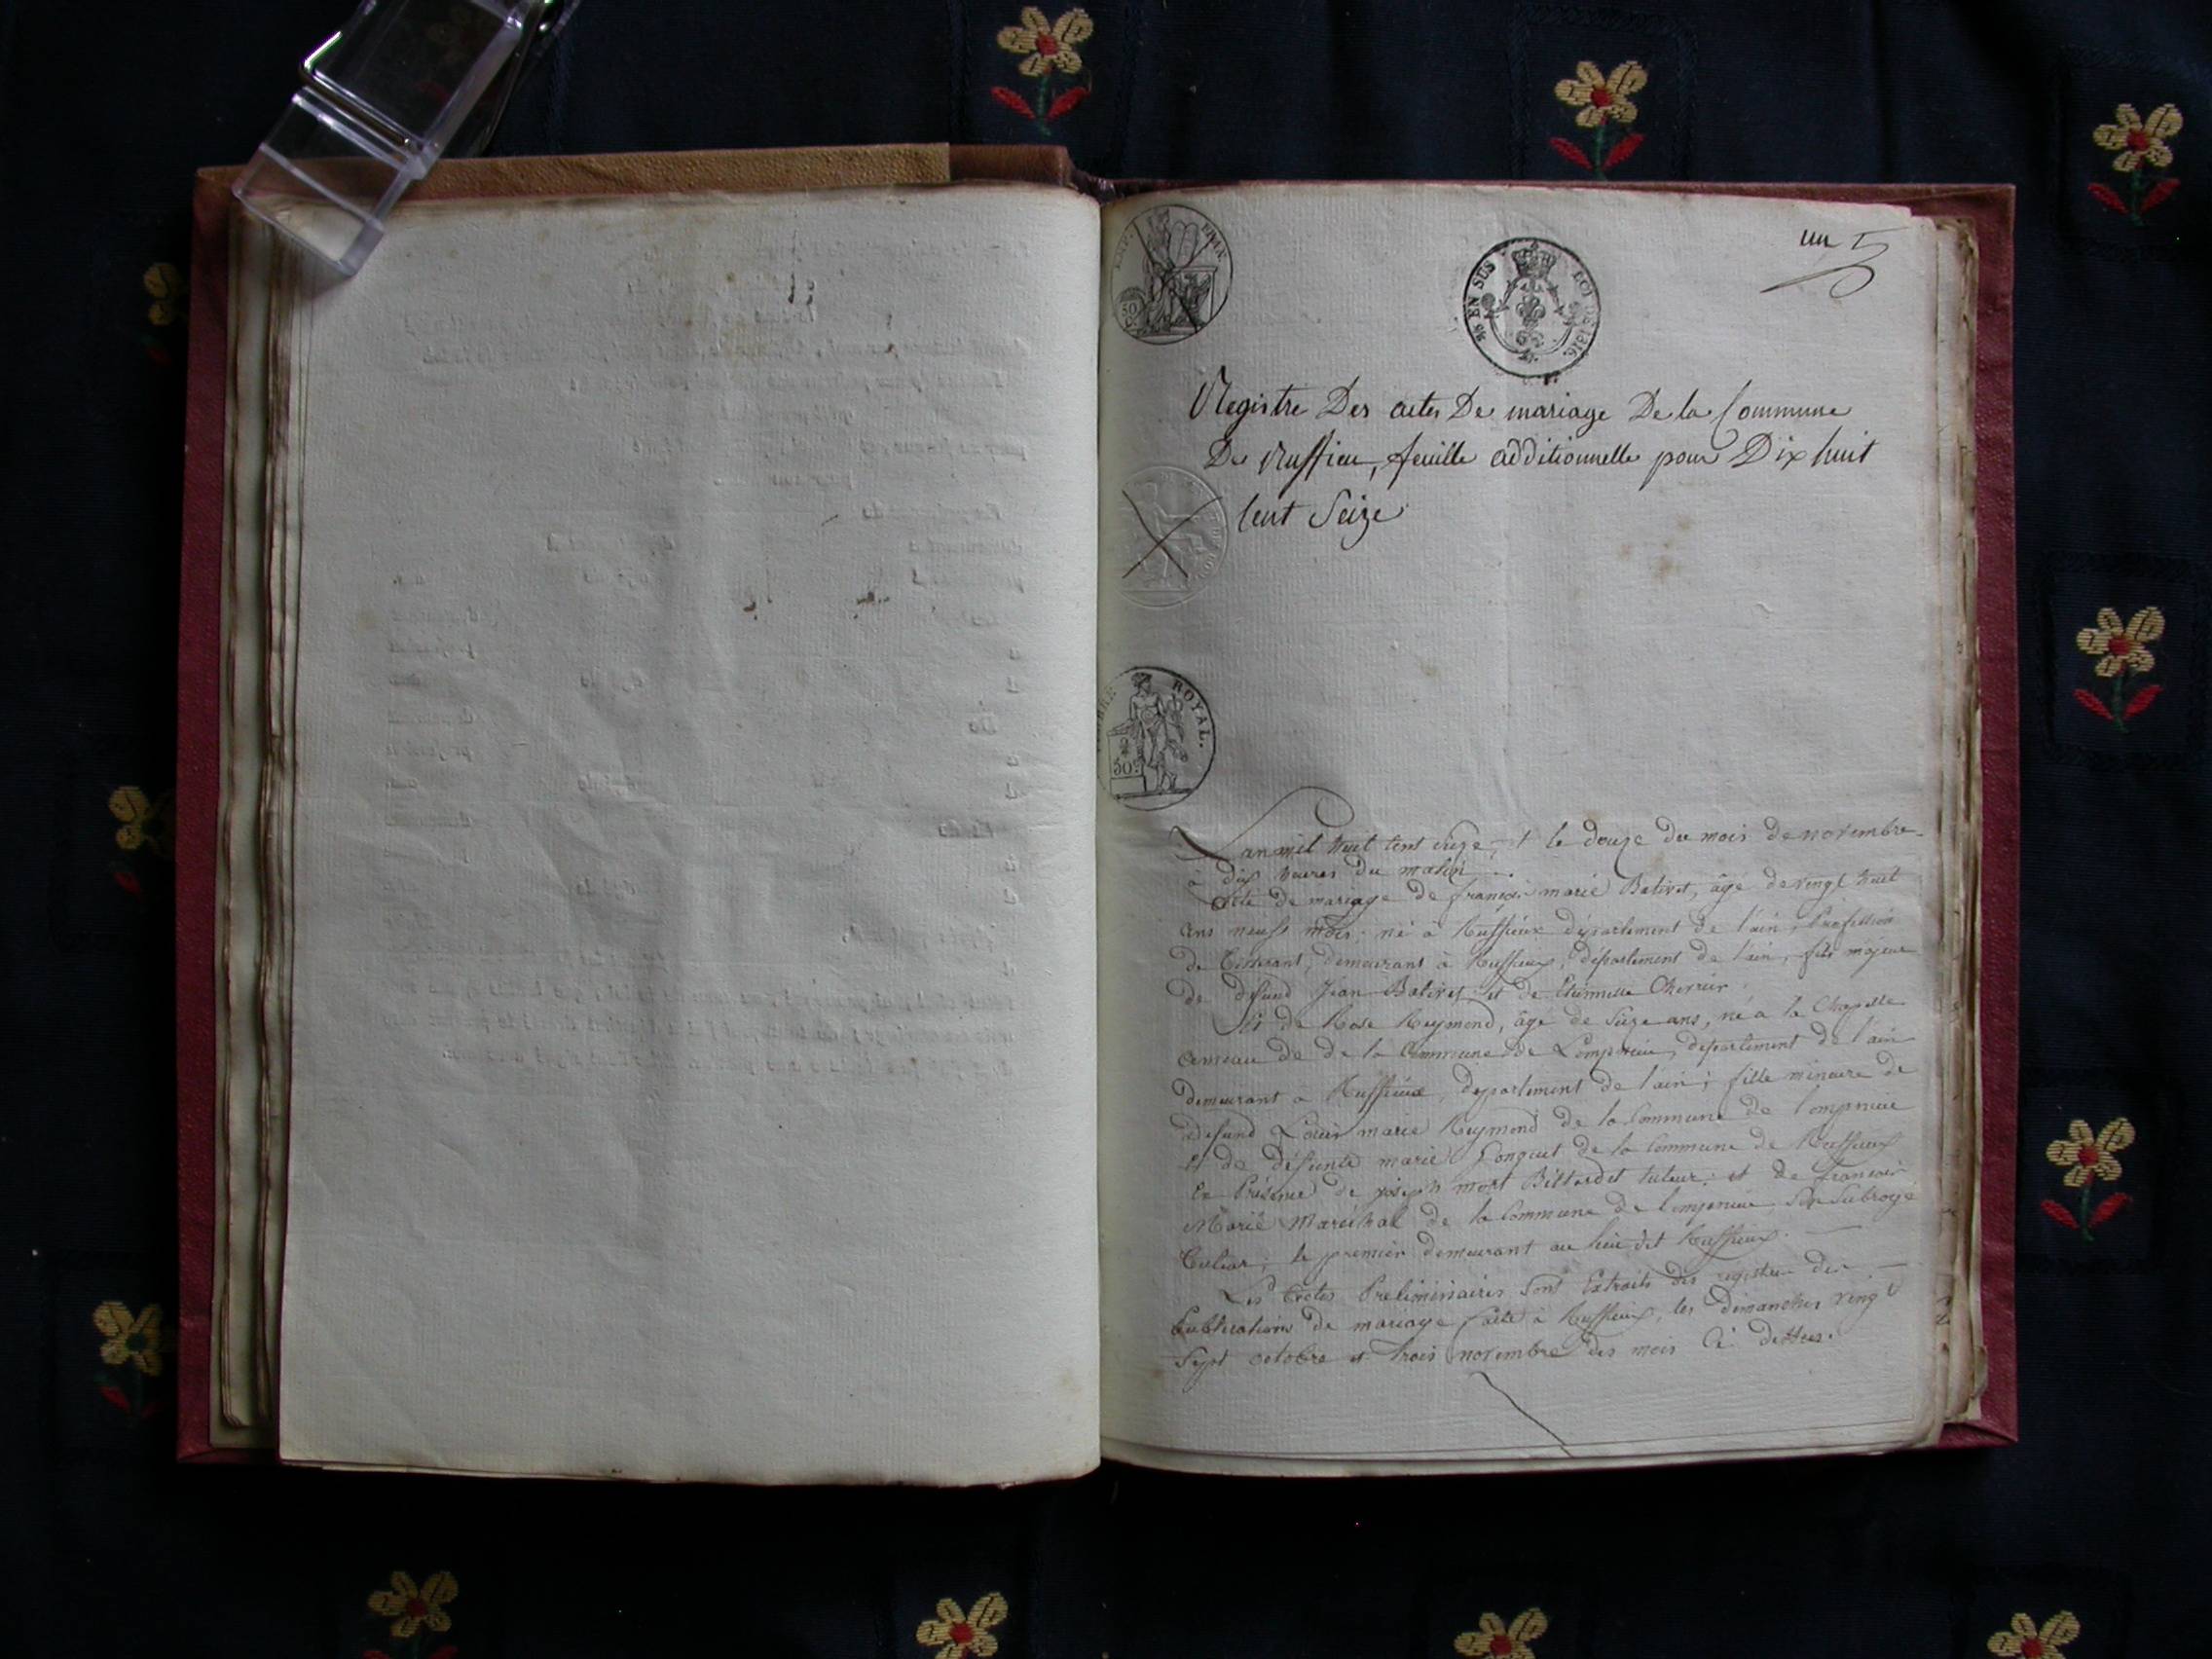 un
EMP. FRAN.
50 C.
¾ EN SUS LOI DE 1816.
Registre Des actes De mariage De la Commune
De Ruffieu, feuille additionnelle pour Dix huit
Cent Seize
TIMBRE ROYAL.
50.
L'an mil huit cent Seize, et le douze du mois de novembre
à dix heures du matin
acte de mariage de françois marie Balivet, âgé de vingt huit
ans neuf mois, né à Ruffieux département de l'ain, Profession
de tisserant, demeurant à Ruffieux, département de l'ain, fils majeur
de défund Jean Balivet et de Etiennette Cherrier.
Et de Rose Reymond, âgé de Seize ans, né à la Chapelle
ameau de de la Commune de Lompnieu, département de l'ain
demeurant à Ruffieux, département de l'ain; fille mineure de
défund Louis marie Reymond de la Commune de Lompnieu
et de défunte marie Longuet de la Commune de Ruffieux
En Présence de joseph mort Billardet tuteur; et de françois
Marie Maréchal de la Commune de Lompnieu Son Subrogé
tuteur; le premier demeurant au lieu dit Ruffieux.
Les Actes Preliminaires Sont Extraits des registre des
Publications de mariage faite à Ruffieux, les dimanches vingt
Sept octobre et trois novembre des mois Ci dessus.